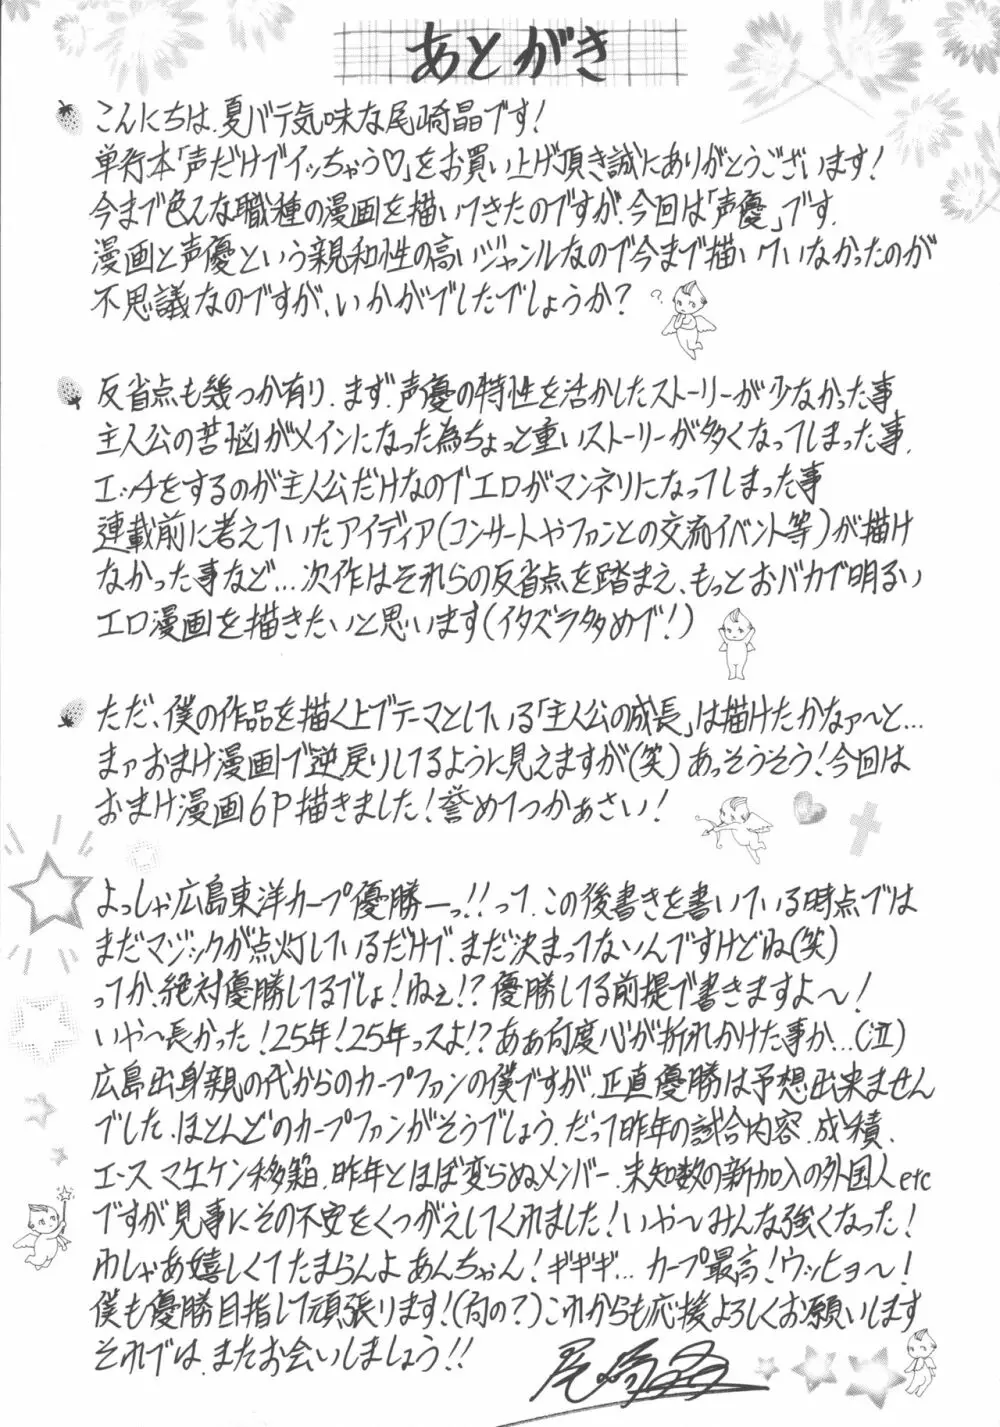 あとがき
こんにちは、夏バテ気味な尾崎晶です!
単行本「声だけでイッちゃう♡」をお買い上げ頂き誠にありがとうございます!
今まで色んな職種の漫画を描いてきたのですが、今回は「声優」です。
漫画と声優という親和性の高いジャンルなので今まで描いていなかったのが
不思議なのですが、いかがでしたでしょうか?
反省点も幾つか有り、まず、声優の特性を活かしたストーリーが少なかった事
主人公の苦悩がメインになった為ちょっと重いストーリーが多くなってしまった事、
エッチをするのが主人公だけなのでエロがマンネリになってしまった事
連載前に考えていたアイディア(コンサートやファンとの交流イベント等)が描け
なかった事など…次作はそれらの反省点を踏まえ、もっとおバカで明るい
エロ漫画を描きたいと思います(イタズラ多めで!)
ただ、僕の作品を描く上でテーマとしている「主人公の成長」は描けたかなァ〜と…
まァおまけ漫画で逆戻りしてるように見えますが(笑)あっそうそう!今回は
おまけ漫画6P描きました!誉めてつかぁさい!
よっしゃ広島東洋カープ優勝ーっ!!って、この後書きを書いている時点では
まだマジックが点灯しているだけで、まだ決まってないんですけどね(笑)
ってか、絶対優勝してるでしょ!ねぇ!?優勝してる前提で書きますよ〜!
いや〜長かった!25年!25年っスよ!?あぁ何度心が折れかけた事か…(泣)
広島出身親の代からのカープファンの僕ですが、正直優勝は予想出来ません
でした、ほとんどのカープファンがそうでしょう、だって昨年の試合内容、成績、
エース マエケン移籍、昨年とほぼ変らぬメンバー、未知数の新加入の外国人etc
ですが見事にその不安をくつがえしてくれました!いや〜みんな強くなった!
わしゃあ嬉しくてたまらんよあんちゃん!ギギギ…カープ最高!ウッヒョ〜!
僕も優勝目指して頑張ります!(何の?)これからも応援よろしくお願いします
それでは、またお会いしましょう!!
尾崎晶